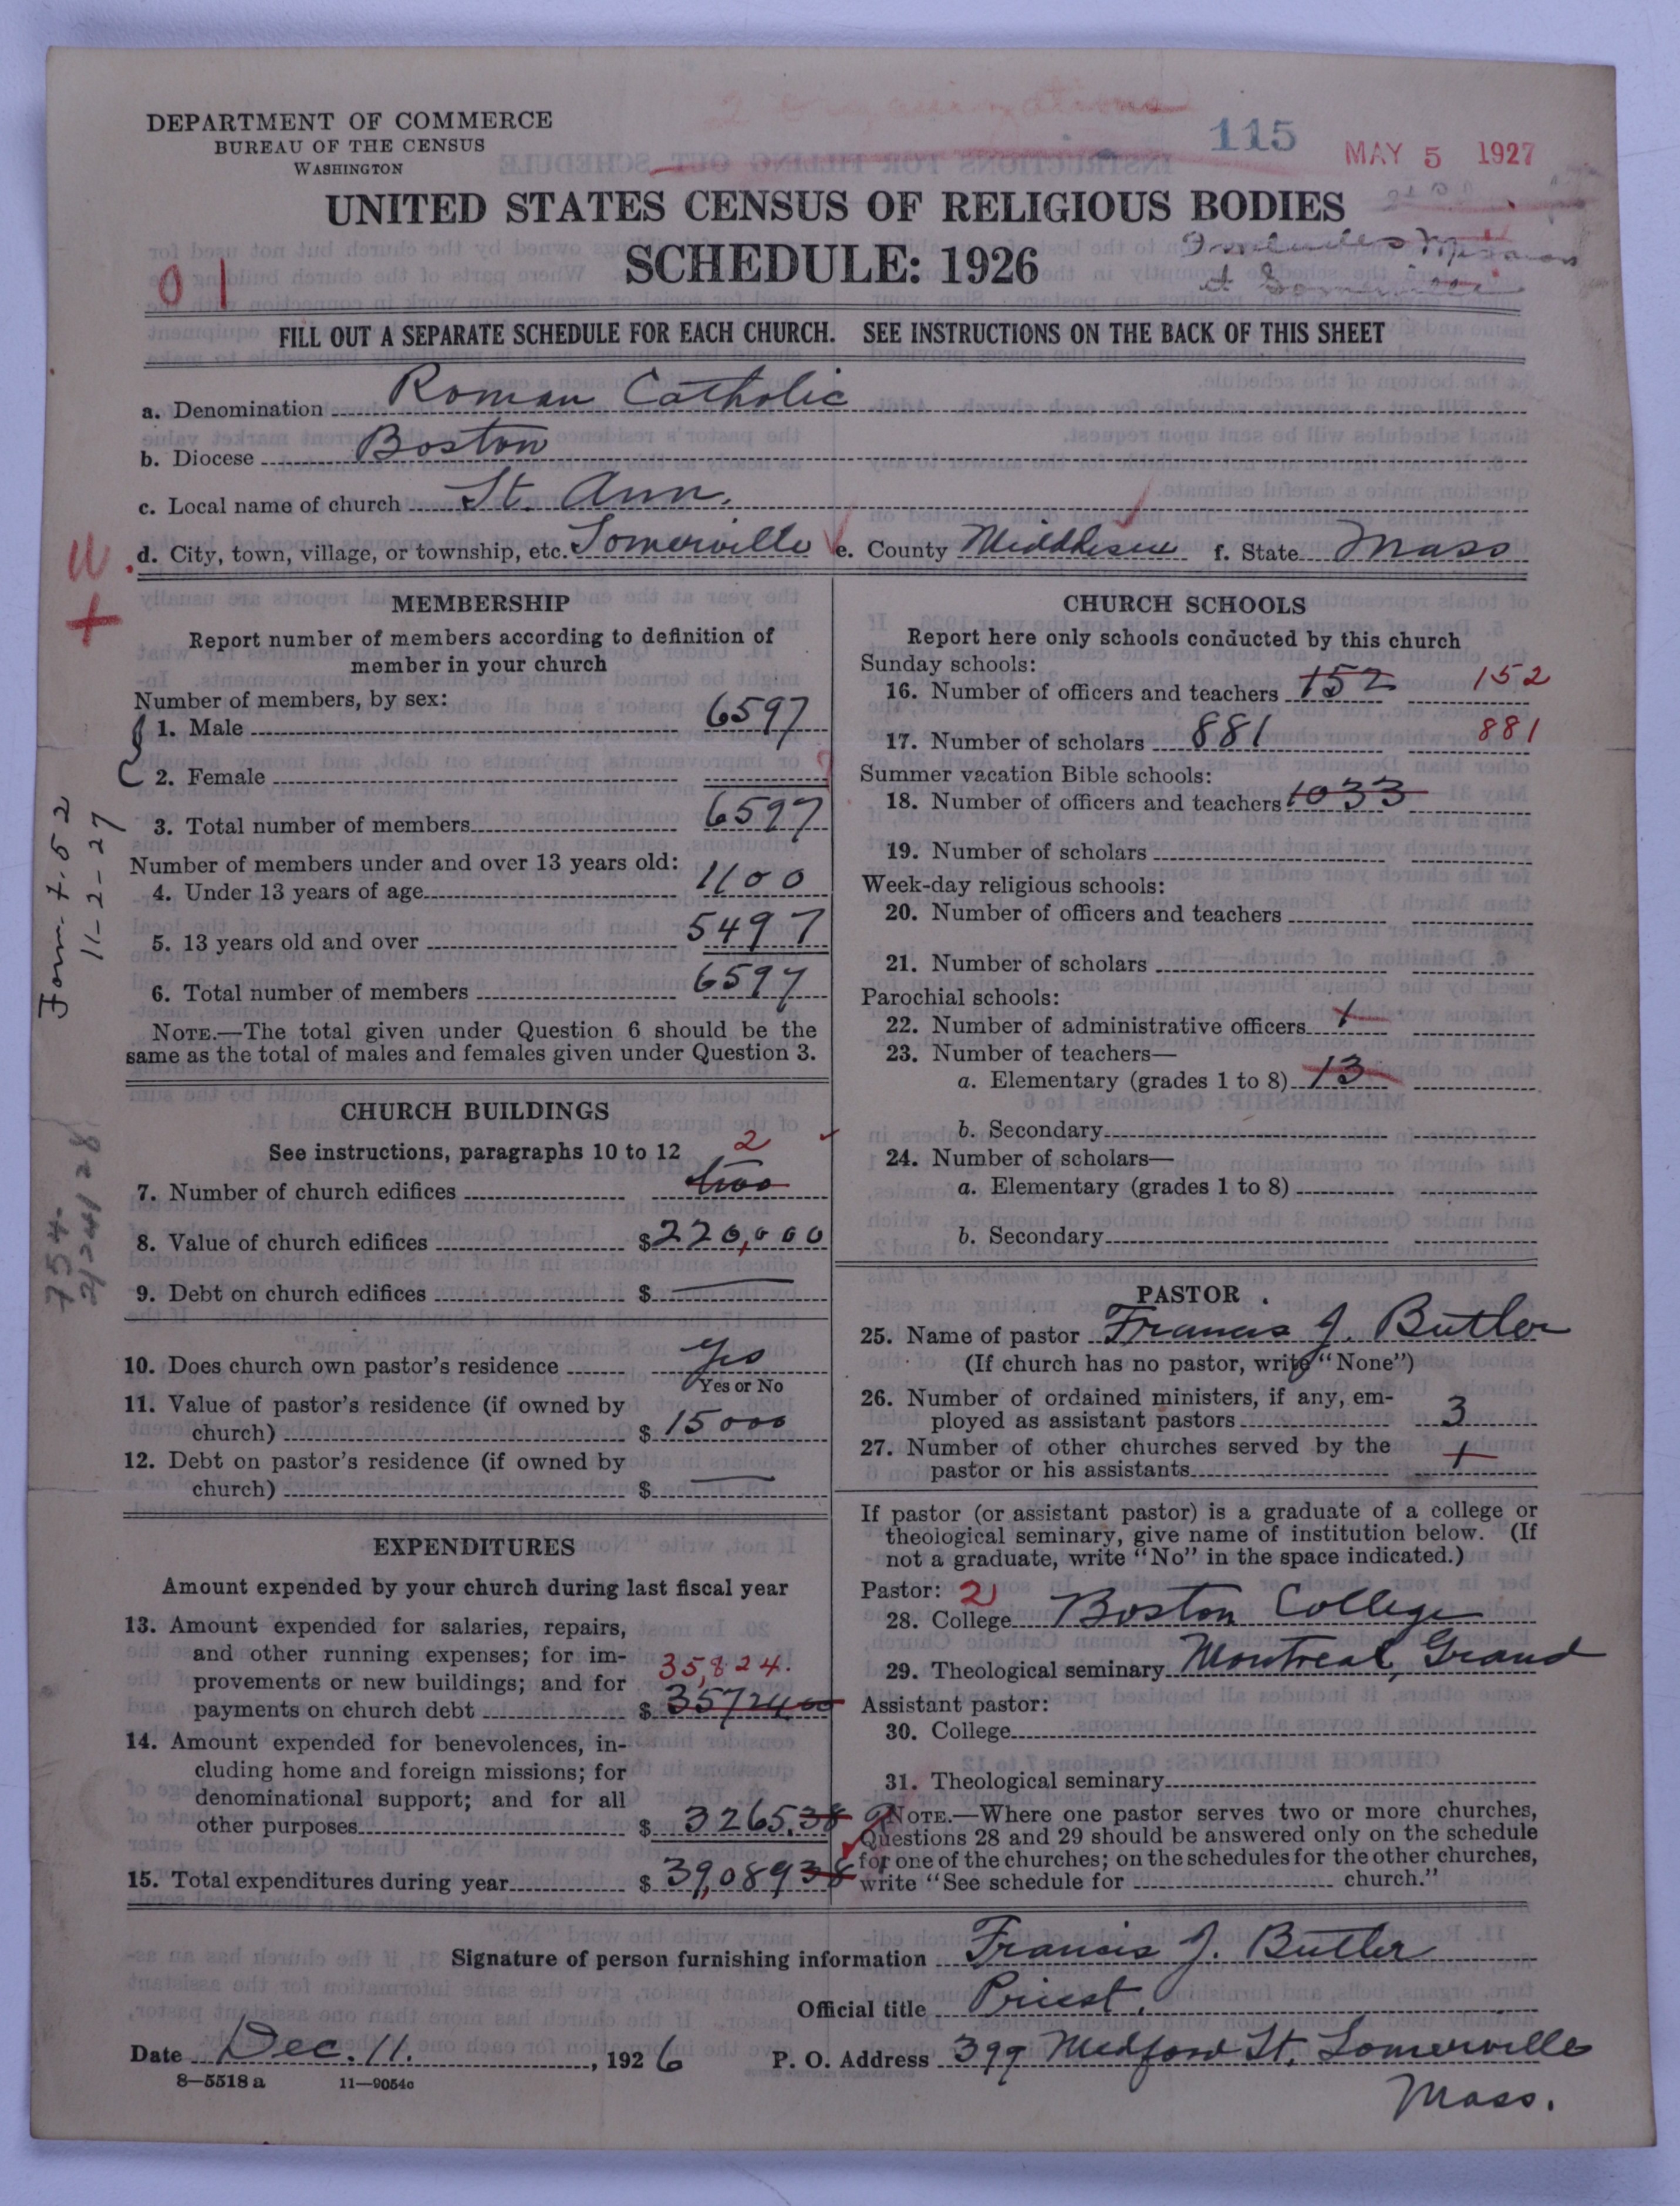 DEPARTMENT OF COMMERCE
BUREAU OF THE CENSUS
WASHINGTON
115
MAY 5 1927
UNITED STATES CENSUS OF RELIGIOUS BODIES
SCHEDULE: 1926
Includes Mission
at Somerville
01
FILL OUT A SEPARATE SCHEDULE FOR EACH CHURCH. SEE INSTRUCTIONS ON THE BACK OF THIS SHEET
a. Denomination Roman Catholic
b. Diocese Boston
c. Local name of church St. Ann.
d. City, town, village, or township, etc. Somerville e. County Middlesex f. State Mass
MEMBERSHIP
Report number of members according to definition of
member in your church
Number of members, by sex:
1. Male 6597
2. Female
3. Total number of members 6597
Number of members under and over 13 years old:
4. Under 13 years of age 1100
5. 13 years old and over 5497
6. Total number of members 6597
NOTE.—The total given under Question 6 should be the
same as the total of males and females given under Question 3.
Form 7.52
11-2-27
754-
2/24/28
CHURCH BUILDINGS
See instructions, paragraphs 10 to 12
2
7. Number of church edifices two
8. Value of church edifices $220,000
9. Debt on church edifices $ —
10. Does church own pastor's residence Yes
Yes or No
11. Value of pastor's residence (if owned by
church) $ 15000
12. Debt on pastor's residence (if owned by
church) $ —
EXPENDITURES
Amount expended by your church during last fiscal year
13. Amount expended for salaries, repairs,
and other running expenses; for im-
provements or new buildings; and for
35,824.
payments on church debt $ 35724.00
14. Amount expended for benevolences, in-
cluding home and foreign missions; for
denominational support; and for all
other purposes $ 3265.38
15. Total expenditures during year $ 39,08938
CHURCH SCHOOLS
Report here only schools conducted by this church
Sunday schools:
16. Number of officers and teachers 152 152
17. Number of scholars 881 881
Summer vacation Bible schools:
18. Number of officers and teachers 1033
19. Number of scholars
Week-day religious schools:
20. Number of officers and teachers
21. Number of scholars
Parochial schools:
22. Number of administrative officers 1
23. Number of teachers—
a. Elementary (grades 1 to 8) 13
b. Secondary
24. Number of scholars—
a. Elementary (grades 1 to 8)
b. Secondary
PASTOR
25. Name of pastor Francis J. Butler
(If church has no pastor, write "None")
26. Number of ordained ministers, if any, em-
ployed as assistant pastors 3
27. Number of other churches served by the
pastor or his assistants 1
If pastor (or assistant pastor) is a graduate of a college or
theological seminary, give name of institution below. (If
not a graduate, write "No" in the space indicated.)
Pastor: 2
28. College Boston College
29. Theological seminary Montreal, Grand
Assistant pastor:
30. College
31. Theological seminary
NOTE.—Where one pastor serves two or more churches,
Questions 28 and 29 should be answered only on the schedule
for one of the churches; on the schedules for the other churches,
write "See schedule for church."
Signature of person furnishing information Francis J. Butler
Official title Priest.
Date Dec. 11., 1926 P. O. Address 399 Medford St. Somerville
Mass.
8—5518 a 11—9054c